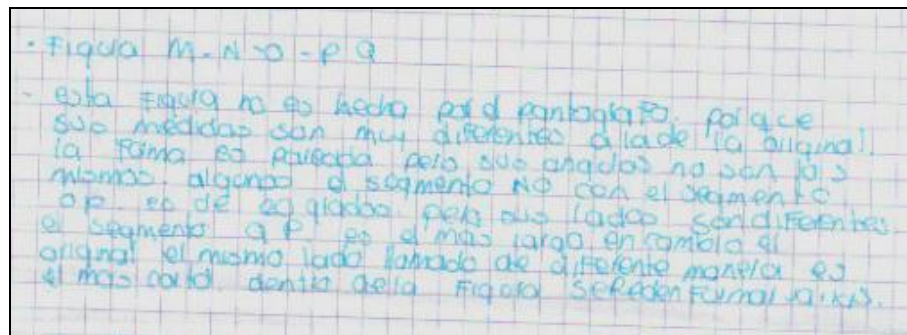 · Figura M-N-O-P Q
- esta Figura no es hecha por el pantografo, porque
sus medidas son muy diferentes a la de la original.
la forma es pareada pero sus angulos no son los
mismos. algunos el segmento NO con el segmento
OP. es de 90 grados. pero sus lados son diferentes
el segmento QP. es el mas largo en cambio el
original el mismo lado llamado de diferente manera es
el mas corto. dentro de la Figura se Peden Formar